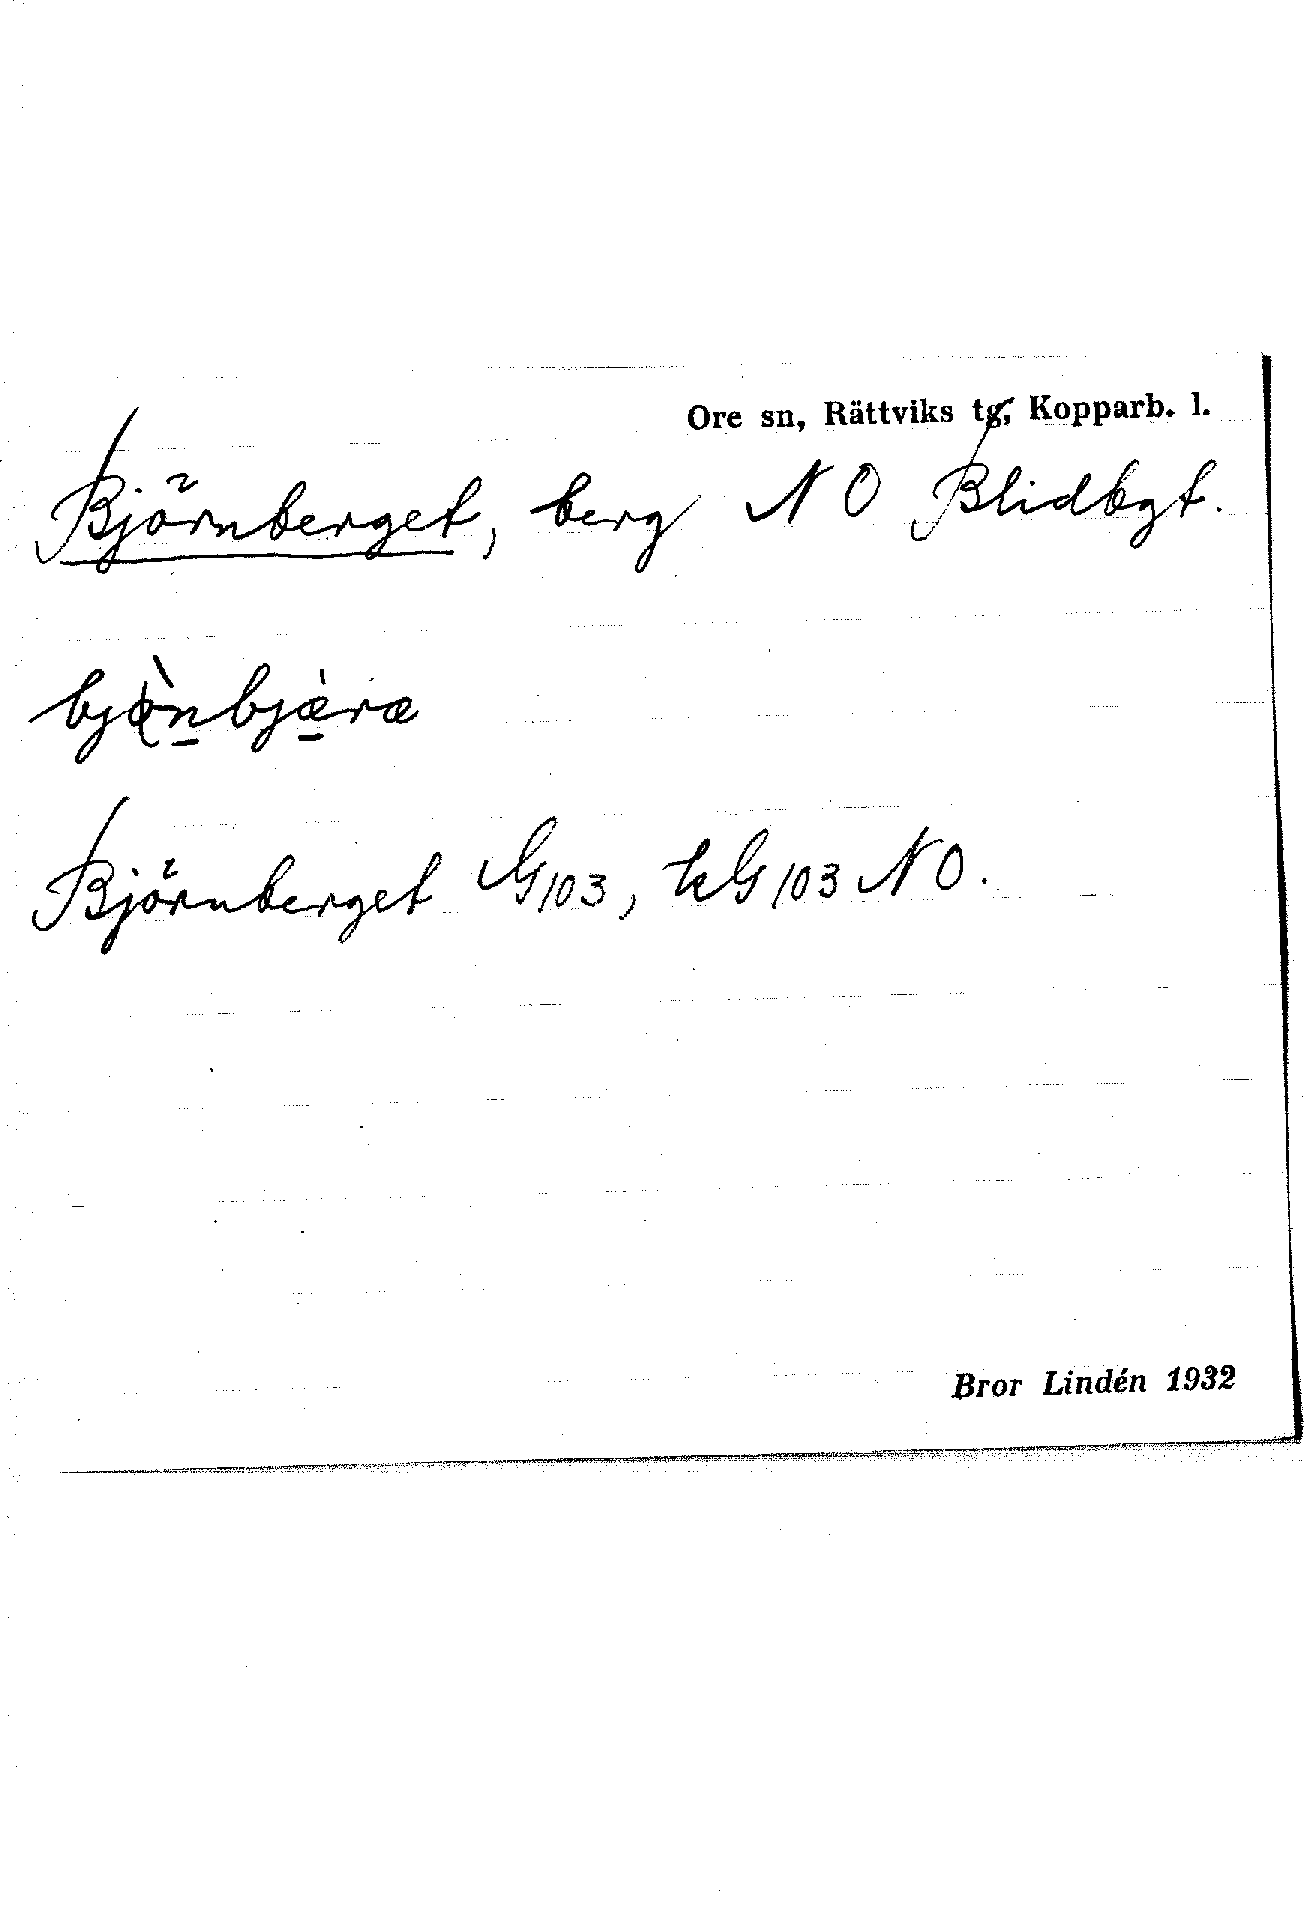 Ore sn, Rättviks tg, Kopparb. l.
Björnberget, berg NO Blidbgt.
Björnberget G103, kG103 NO.
Bror Lindén 1932